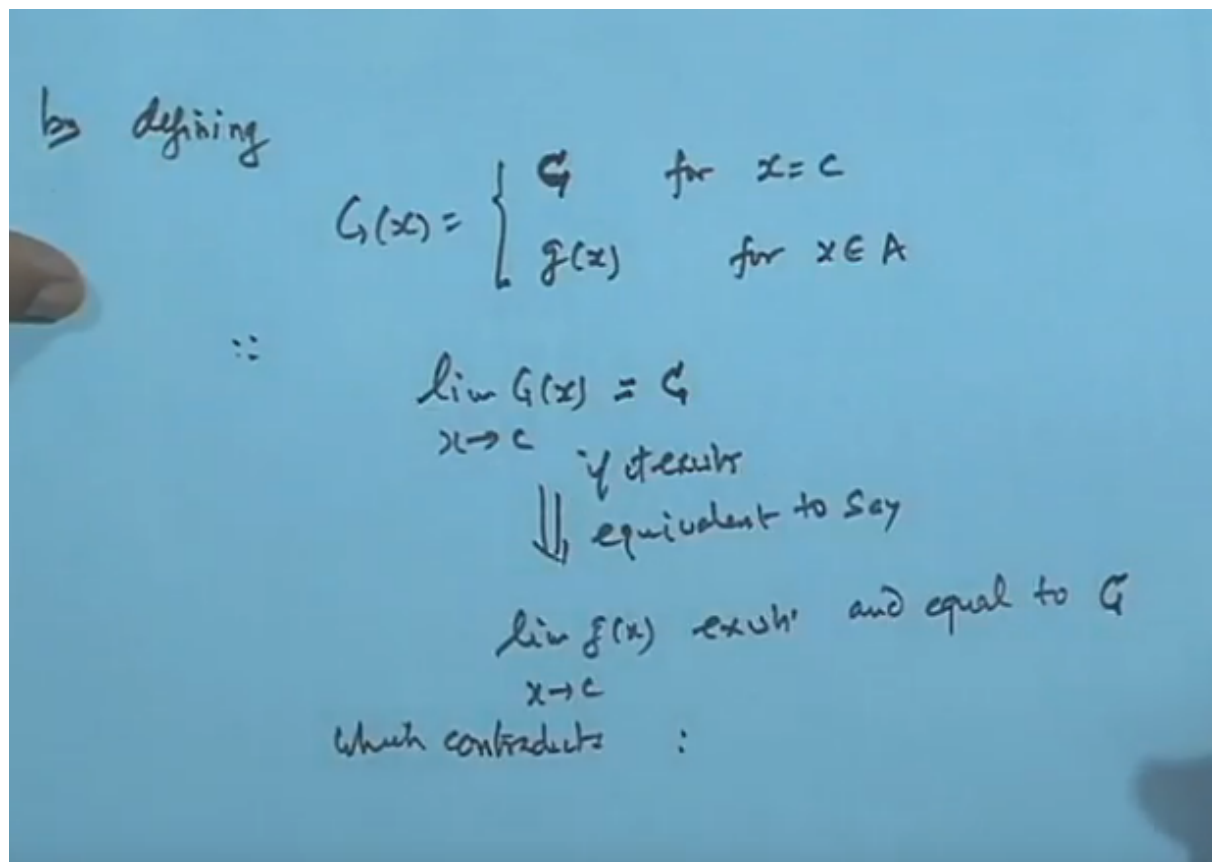 by defining
G(x) = { G for x = c
g(x) for x ∈ A
∵
lim G(x) = G
x → c
if it exists
⇓ equivalent to say
lim g(x) exists and equal to G
x → c
which contradicts :